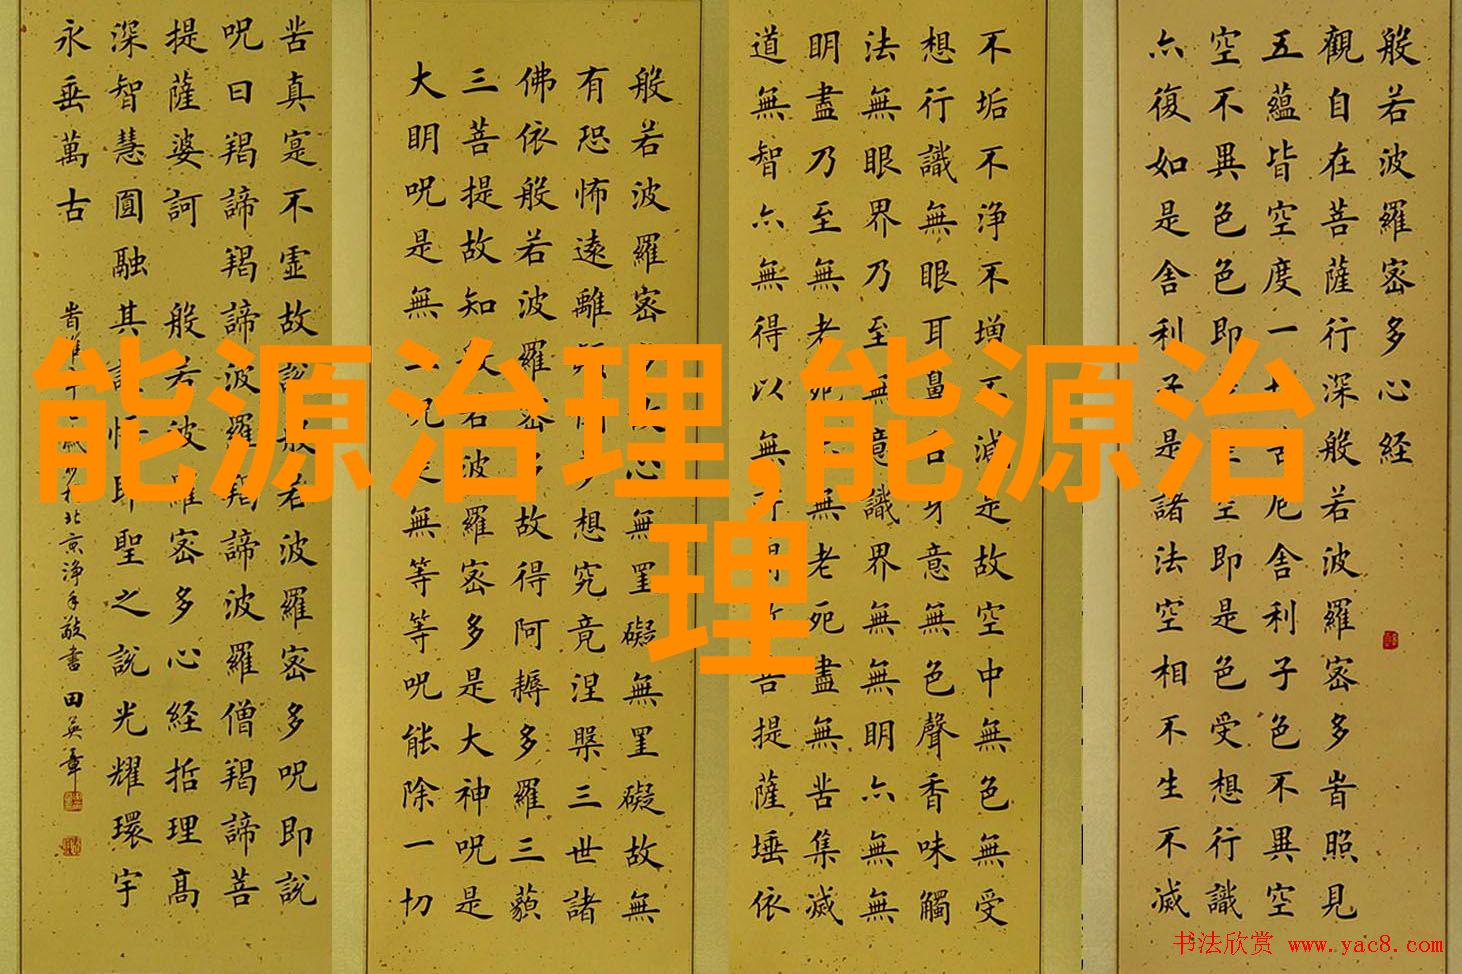 能源治理,能源治
理
般若波羅密多心经
觀自在菩薩行深般若波羅密多旹照見
五蘊皆空度一厄舍利子色不異空
空不異色色即空即是色受想行識
亦復如是舍利子是諸法空相不生不滅
不垢不浄不增不減是故空中無色無受
想行識無眼耳鼻舌身意無色聲香味觸
法無眼界乃至無意識界無無明亦無無
明盡乃至無老死無老死盡無苦集滅
道無智亦無得以無菩提薩埵依
般若波羅密心無罣礙無罣礙故無
有恐怖遠離想究竟涅槃三世諸
佛依般若波羅密多故得阿耨多羅三藐
三菩提故知若波羅密多是大神呪是
大明呪是無上呪是無等等呪能除一切
苦真寔不虛故說般若波羅密多呪即說
呪曰羯諦羯諦波羅羯諦波羅僧羯諦菩
提薩婆訶 般若波羅密多心经括理高
深智慧圓融其即聖之說光耀環宇
永垂萬古
北京浄手敬書 田英章
书法欣赏 www.yac8.com